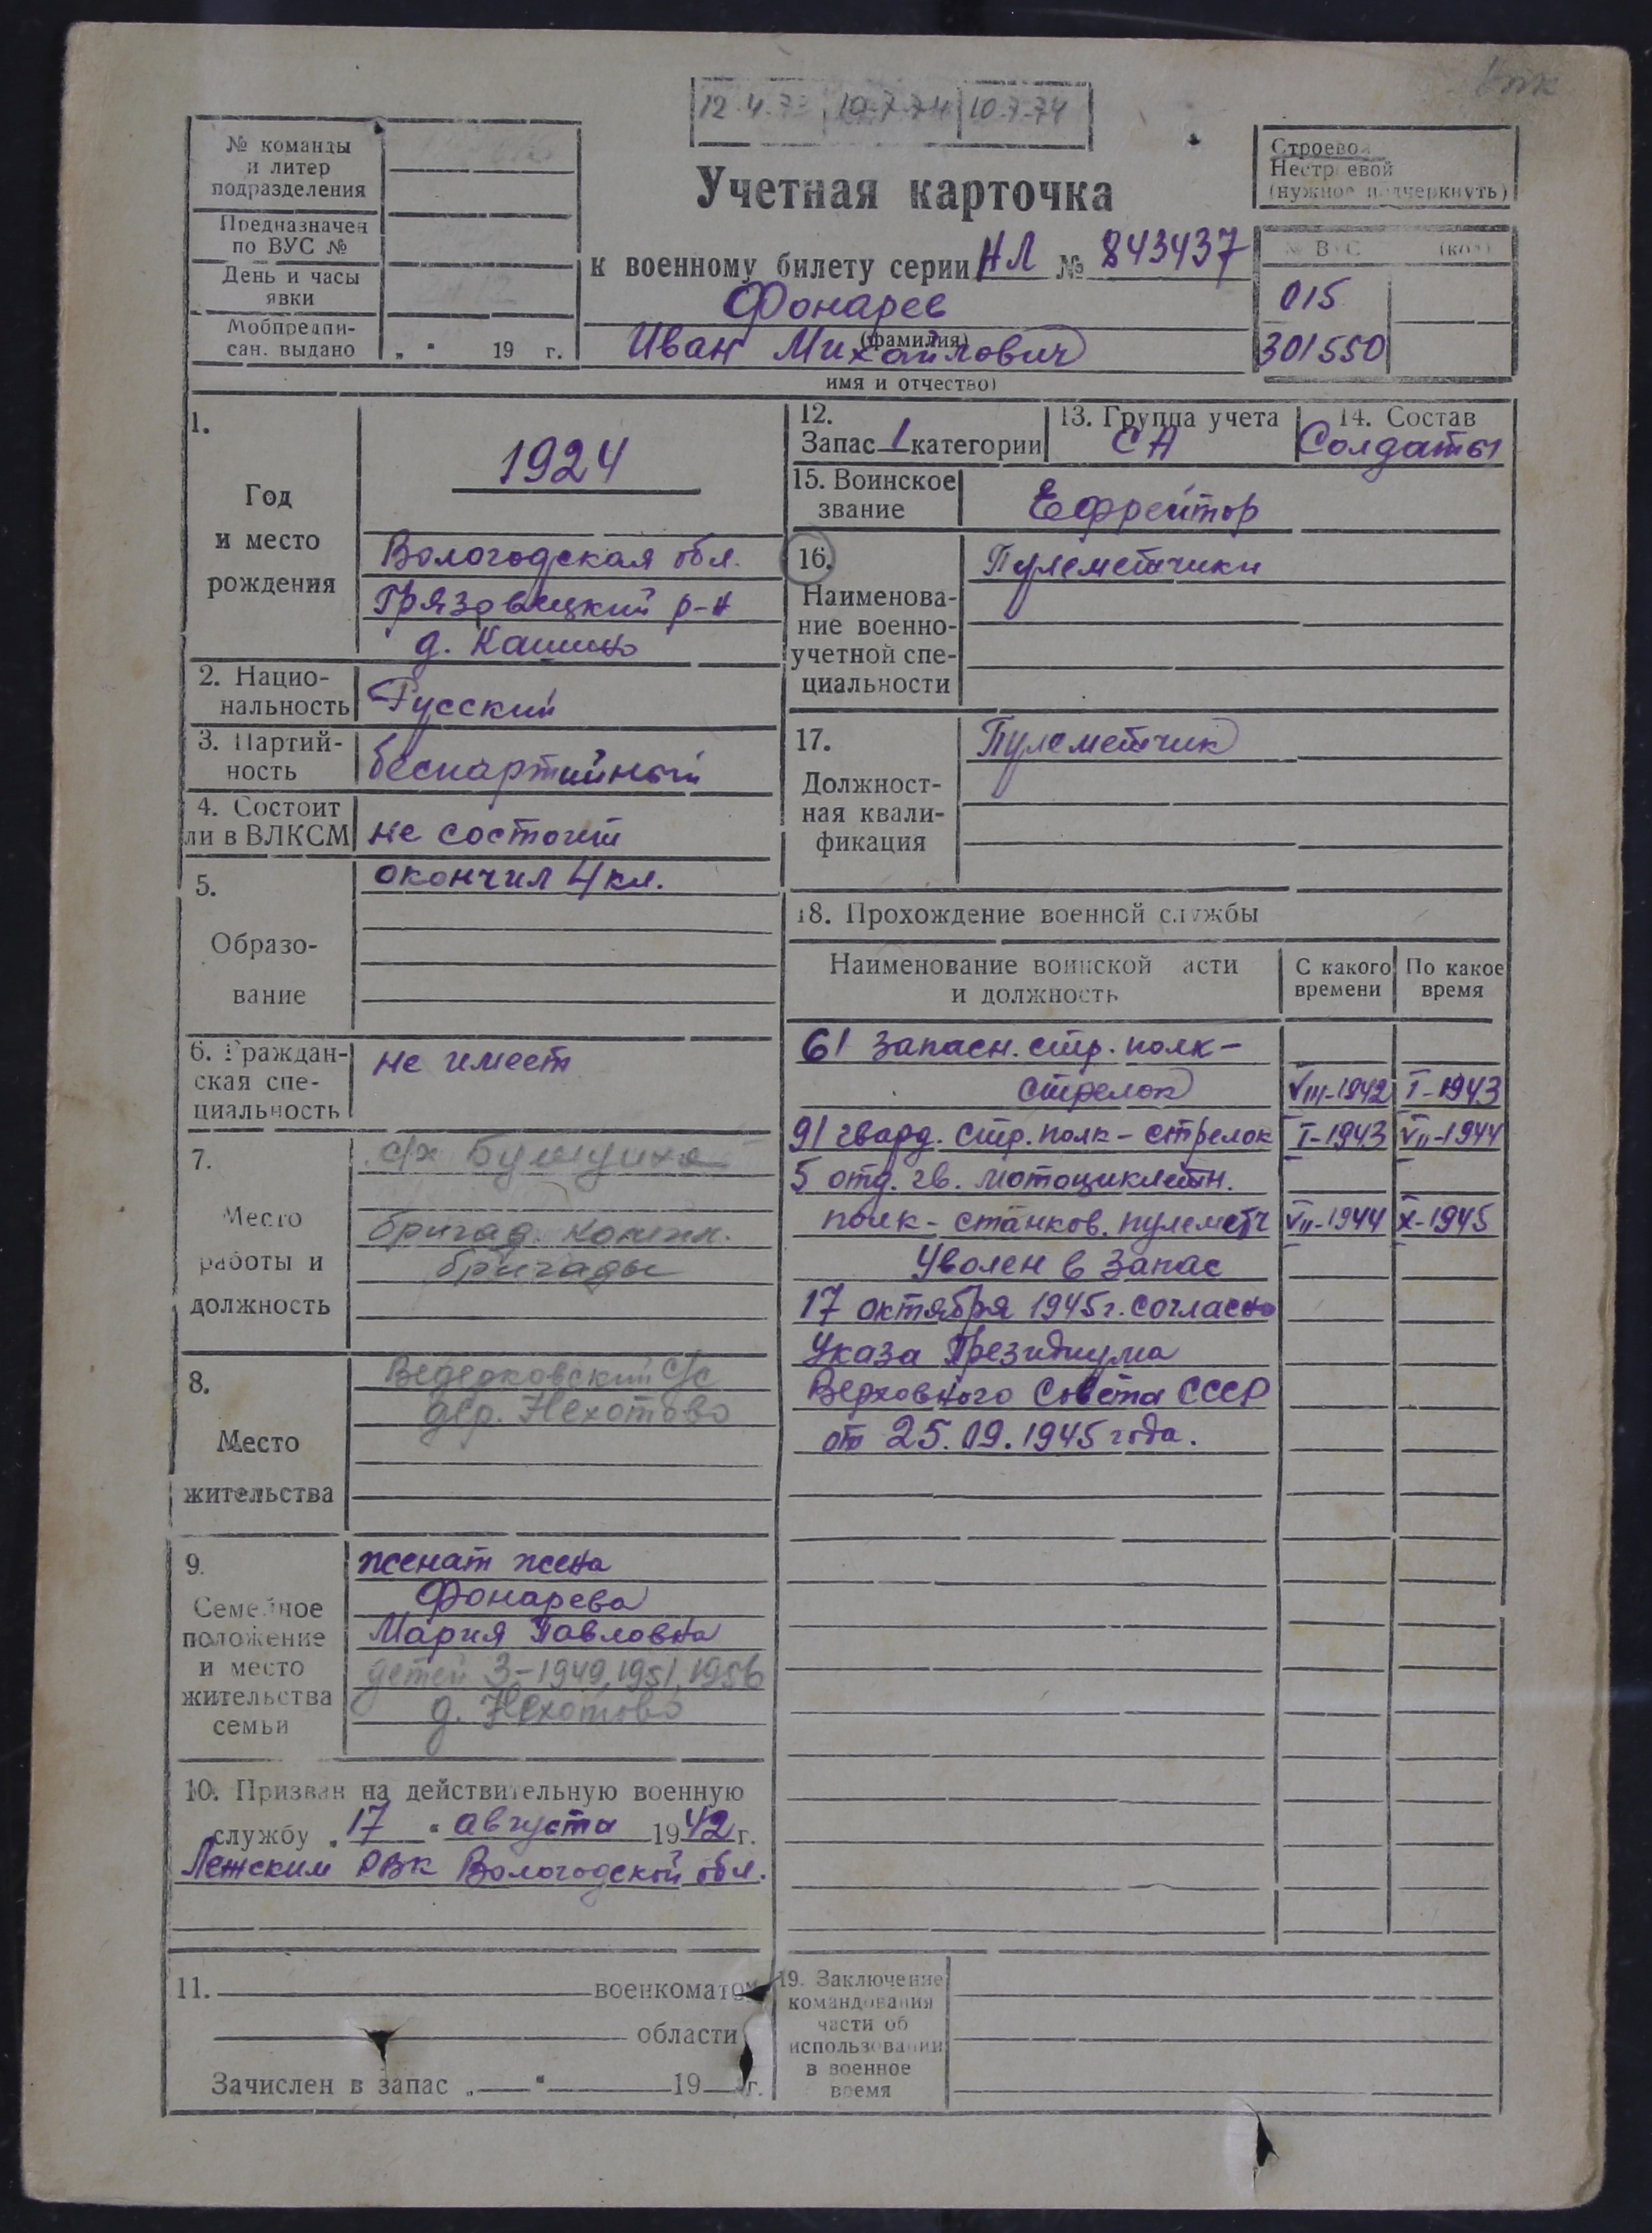 12.4.73 10.7.74 10.7.74
№ команды
и литер
подразделения
Предназначен
по ВУС №
День и часы
явки
Мобпредпи-
сан. выдано „ " 19 г.
Учетная карточка
к военному билету серии НЛ № 843437
Фонарев
(фамилия)
Иван Михайлович
имя и отчество)
Строевой
Нестроевой
(нужное подчеркнуть)
№ ВУС (код)
015
301550
1.
Год
и место
рождения
1924
Вологодская обл.
Грязовецкий р-н
д. Кашино
2. Нацио-
нальность
Русский
3. Партий-
ность
беспартийный
4. Состоит
ли в ВЛКСМ
не состоит
5.
Образо-
вание
окончил 4 кл.
6. Граждан-
ская спе-
циальность
не имеет
7.
Место
работы и
должность
с/х
бригад.
бригады
8.
Место
жительства
Ведерковский с/с
дер. Нехотово
9.
Семейное
положение
и место
жительства
семьи
женат жена
Фонарева
Мария Павловна
детей 3-1949, 1951, 1956
д. Нехотово
10. Призван на действительную военную
службу „17" августа 1942 г.
Лежским РВК Вологодской обл.
11. военкоматом
области
Зачислен в запас „ " 19 г.
12.
Запас 1 категории
13. Группа учета
СА
14. Состав
Солдаты
15. Воинское
звание
Ефрейтор
16.
Наименова-
ние военно-
учетной спе-
циальности
Пулеметчики
17.
Должност-
ная квали-
фикация
Пулеметчик
18. Прохождение военной службы
Наименование воинской части
и должность
С какого
времени
По какое
время
61 запасн. стр. полк-
стрелок VIII-1942 I-1943
91 гвард. стр. полк - стрелок I-1943 VII-1944
5 отд. гв. мотоциклетн.
полк - станков. пулеметч VII-1944 X-1945
Уволен в запас
17 октября 1945 г. согласно
Указа Президиума
Верховного Совета СССР
от 25.09.1945 года.
19. Заключение
командования
части об
использовании
в военное
время